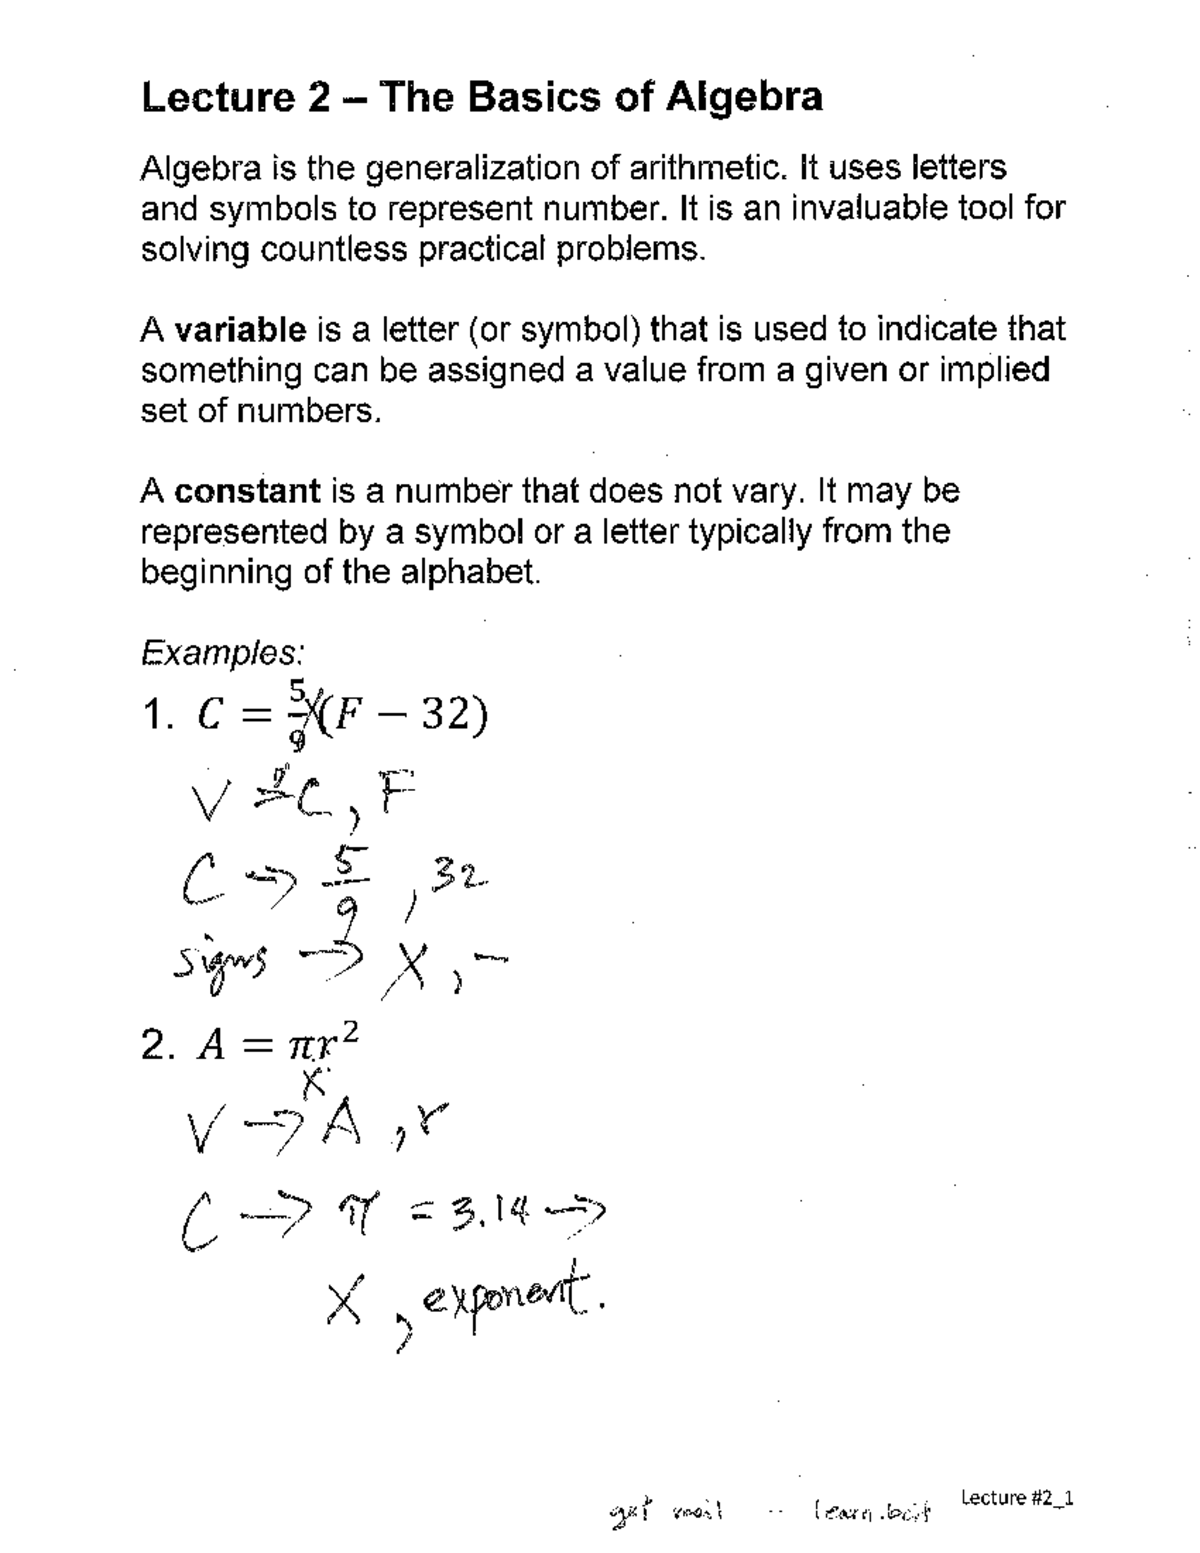 Lecture 2 – The Basics of Algebra
Algebra is the generalization of arithmetic. It uses letters
and symbols to represent number. It is an invaluable tool for
solving countless practical problems.
A variable is a letter (or symbol) that is used to indicate that
something can be assigned a value from a given or implied
set of numbers.
A constant is a number that does not vary. It may be
represented by a symbol or a letter typically from the
beginning of the alphabet.
Examples:
1. C = 5/9 x (F − 32)
V = C, F
C → 5/9, 32
signs → X, -
2. A = πr²
x
V → A, r
C → π = 3.14 →
X, exponent.
get mail -- learn.bcit
Lecture #2_1